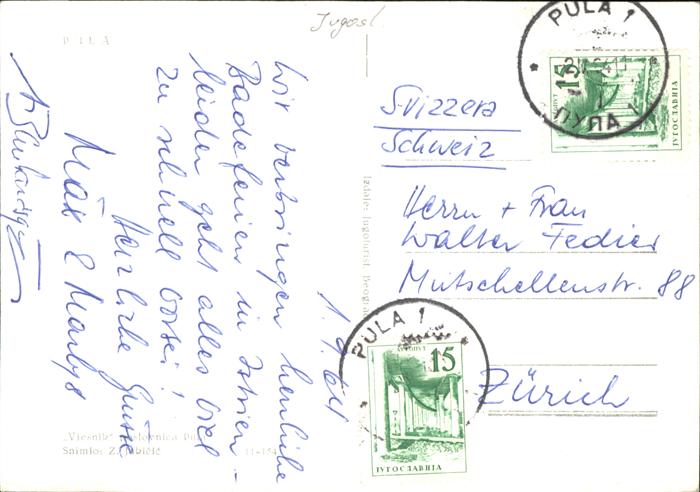 Jugosl.
PULA
1 9 64
Wir verbringen herrliche
Badeferien in Istrien -
leider geht alles viel
zu schnell vorbei!
Herzliche Grüsse
Max &
Svizzera
Schweiz
Herrn + Frau
Walter Fedier
Mutschellenstr. 88
Zürich
PULA 1
ПУЛА 1
15
ЈУГОСЛАВИЈА
PULA 1
15
ЈУГОСЛАВИЈА
Izdaje: Jugoturist Beograd
„Vjesnik"
Snimio: Z.